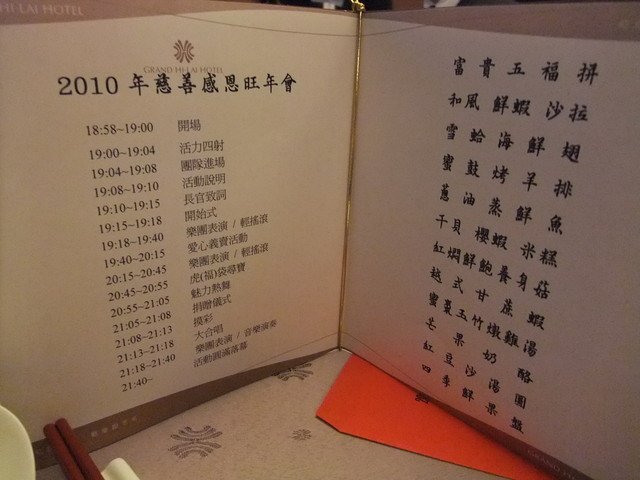 HI-LAI HOTEL
GRAND HI-LAI HOTEL
2010 年慈善感恩旺年會
18:58~19:00 開場
19:00~19:04 活力四射
19:04~19:08 團隊進場
19:08~19:10 活動說明
19:10~19:15 長官致詞
19:15~19:18 開始式
19:18~19:40 樂團表演 / 輕搖滾
19:40~20:15 愛心義賣活動
20:15~20:45 樂團表演 / 輕搖滾
20:45~20:55 虎(福)袋尋寶
20:55~21:05 魅力熱舞
21:05~21:08 捐贈儀式
21:08~21:13 摸彩
21:13~21:18 大合唱
21:18~21:40 樂團表演 / 音樂演奏
21:40~ 活動圓滿落幕
富貴五福拼
和風鮮蝦沙拉
雪蛤海鮮翅
蜜鼓烤羊排
蔥油蒸鮮魚
干貝櫻蝦米糕
紅燜鮮鮑養身菇
越式甘蔗蝦
蜜棗玉竹燉雞湯
芒果奶酪
紅豆沙湯圓
四季鮮果盤